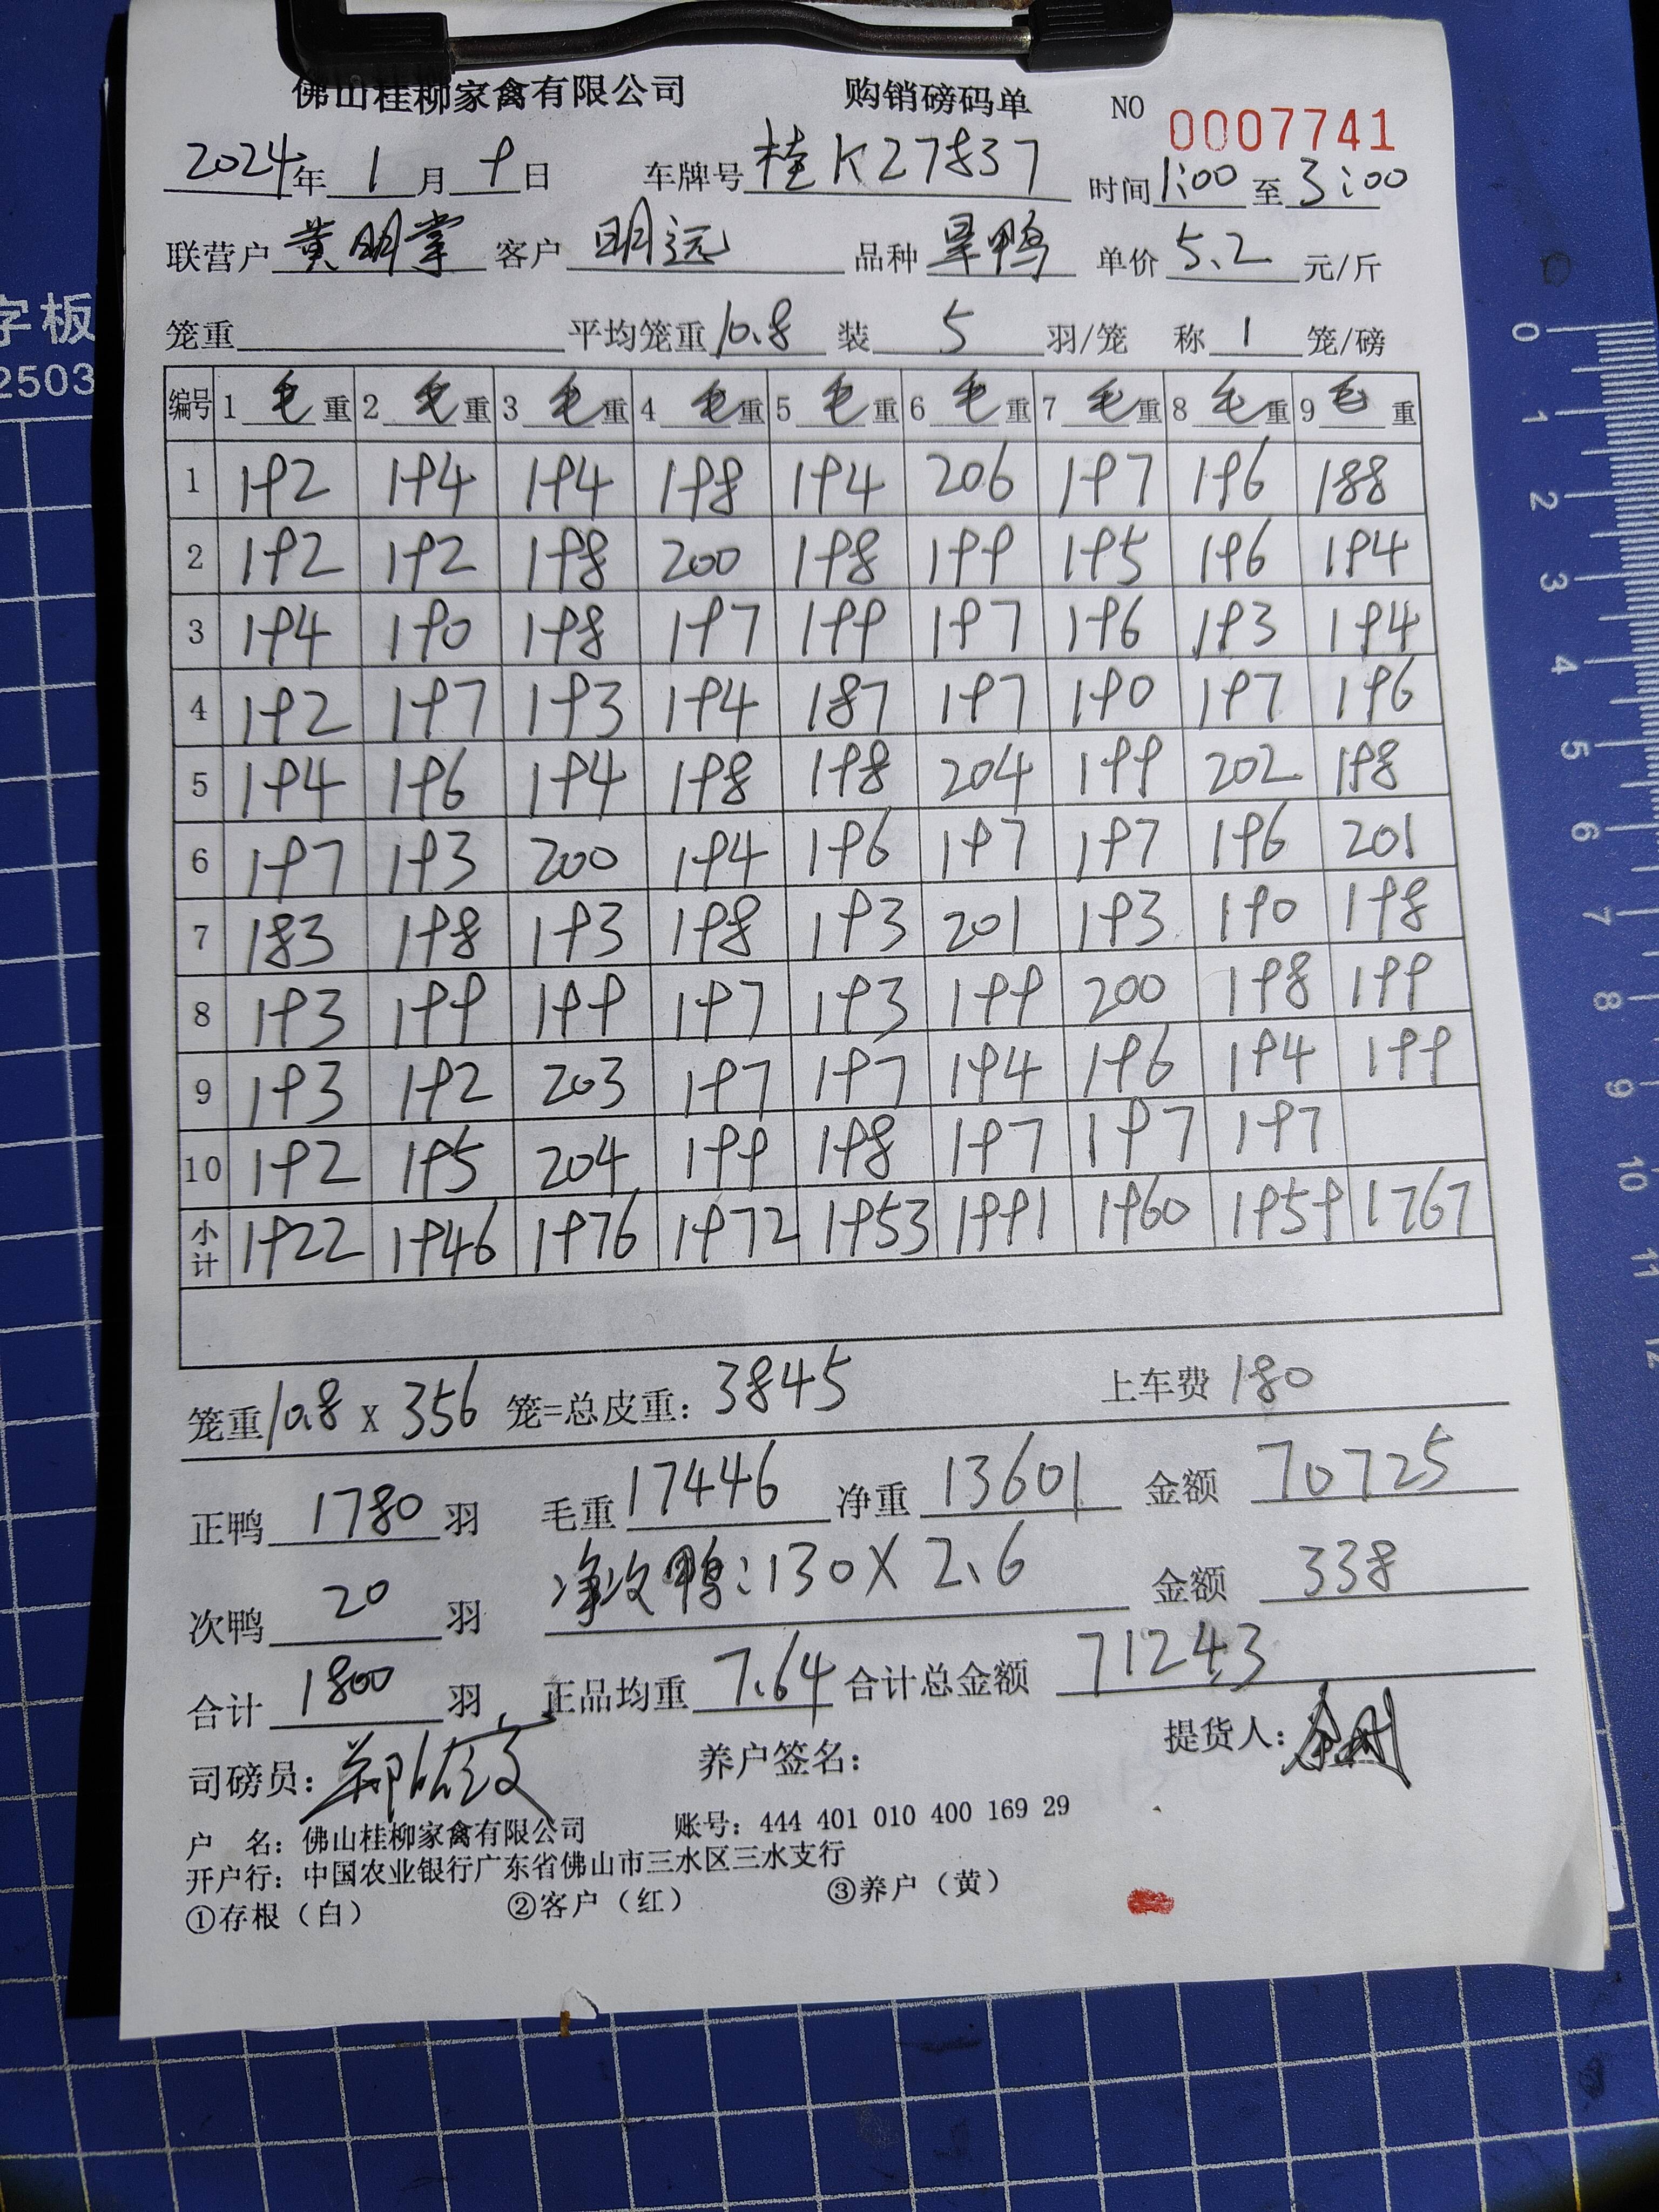 佛山桂柳家禽有限公司 购销磅码单 NO 0007741
2024年 1 月 9 日 车牌号 桂K27837 时间 1:00 至 3:00
联营户 黄明掌 客户 明远 品种 旱鸭 单价 5.2 元/斤
笼重 平均笼重 10.8 装 5 羽/笼 称 1 笼/磅
编号 1 毛重 2 毛重 3 毛重 4 毛重 5 毛重 6 毛重 7 毛重 8 毛重 9 毛重
1 192 194 194 198 194 206 197 196 188
2 192 192 198 200 198 199 195 196 194
3 194 190 198 197 199 197 196 193 194
4 192 197 193 194 187 197 190 197 196
5 194 196 194 198 198 204 199 202 198
6 197 193 200 194 196 197 197 196 201
7 183 198 193 198 193 201 193 190 198
8 193 199 199 197 193 199 200 198 199
9 193 192 203 197 197 194 196 194 199
10 192 195 204 199 198 197 197 197
小计 1922 1946 1976 1972 1953 1991 1960 1959 1767
笼重 10.8 X 356 笼=总皮重: 3845 上车费 180
正鸭 1780 羽 毛重 17446 净重 13601 金额 70725
次鸭 20 羽 净次鸭:130X2.6 金额 338
合计 1800 羽 正品均重 7.64 合计总金额 71243
司磅员: 养户签名: 提货人:
户 名: 佛山桂柳家禽有限公司 账号: 444 401 010 400 169 29
开户行: 中国农业银行广东省佛山市三水区三水支行
①存根(白) ②客户(红) ③养户(黄)
字板
2503
0 1 2 3 4 5 6 7 8 9 10 11 12